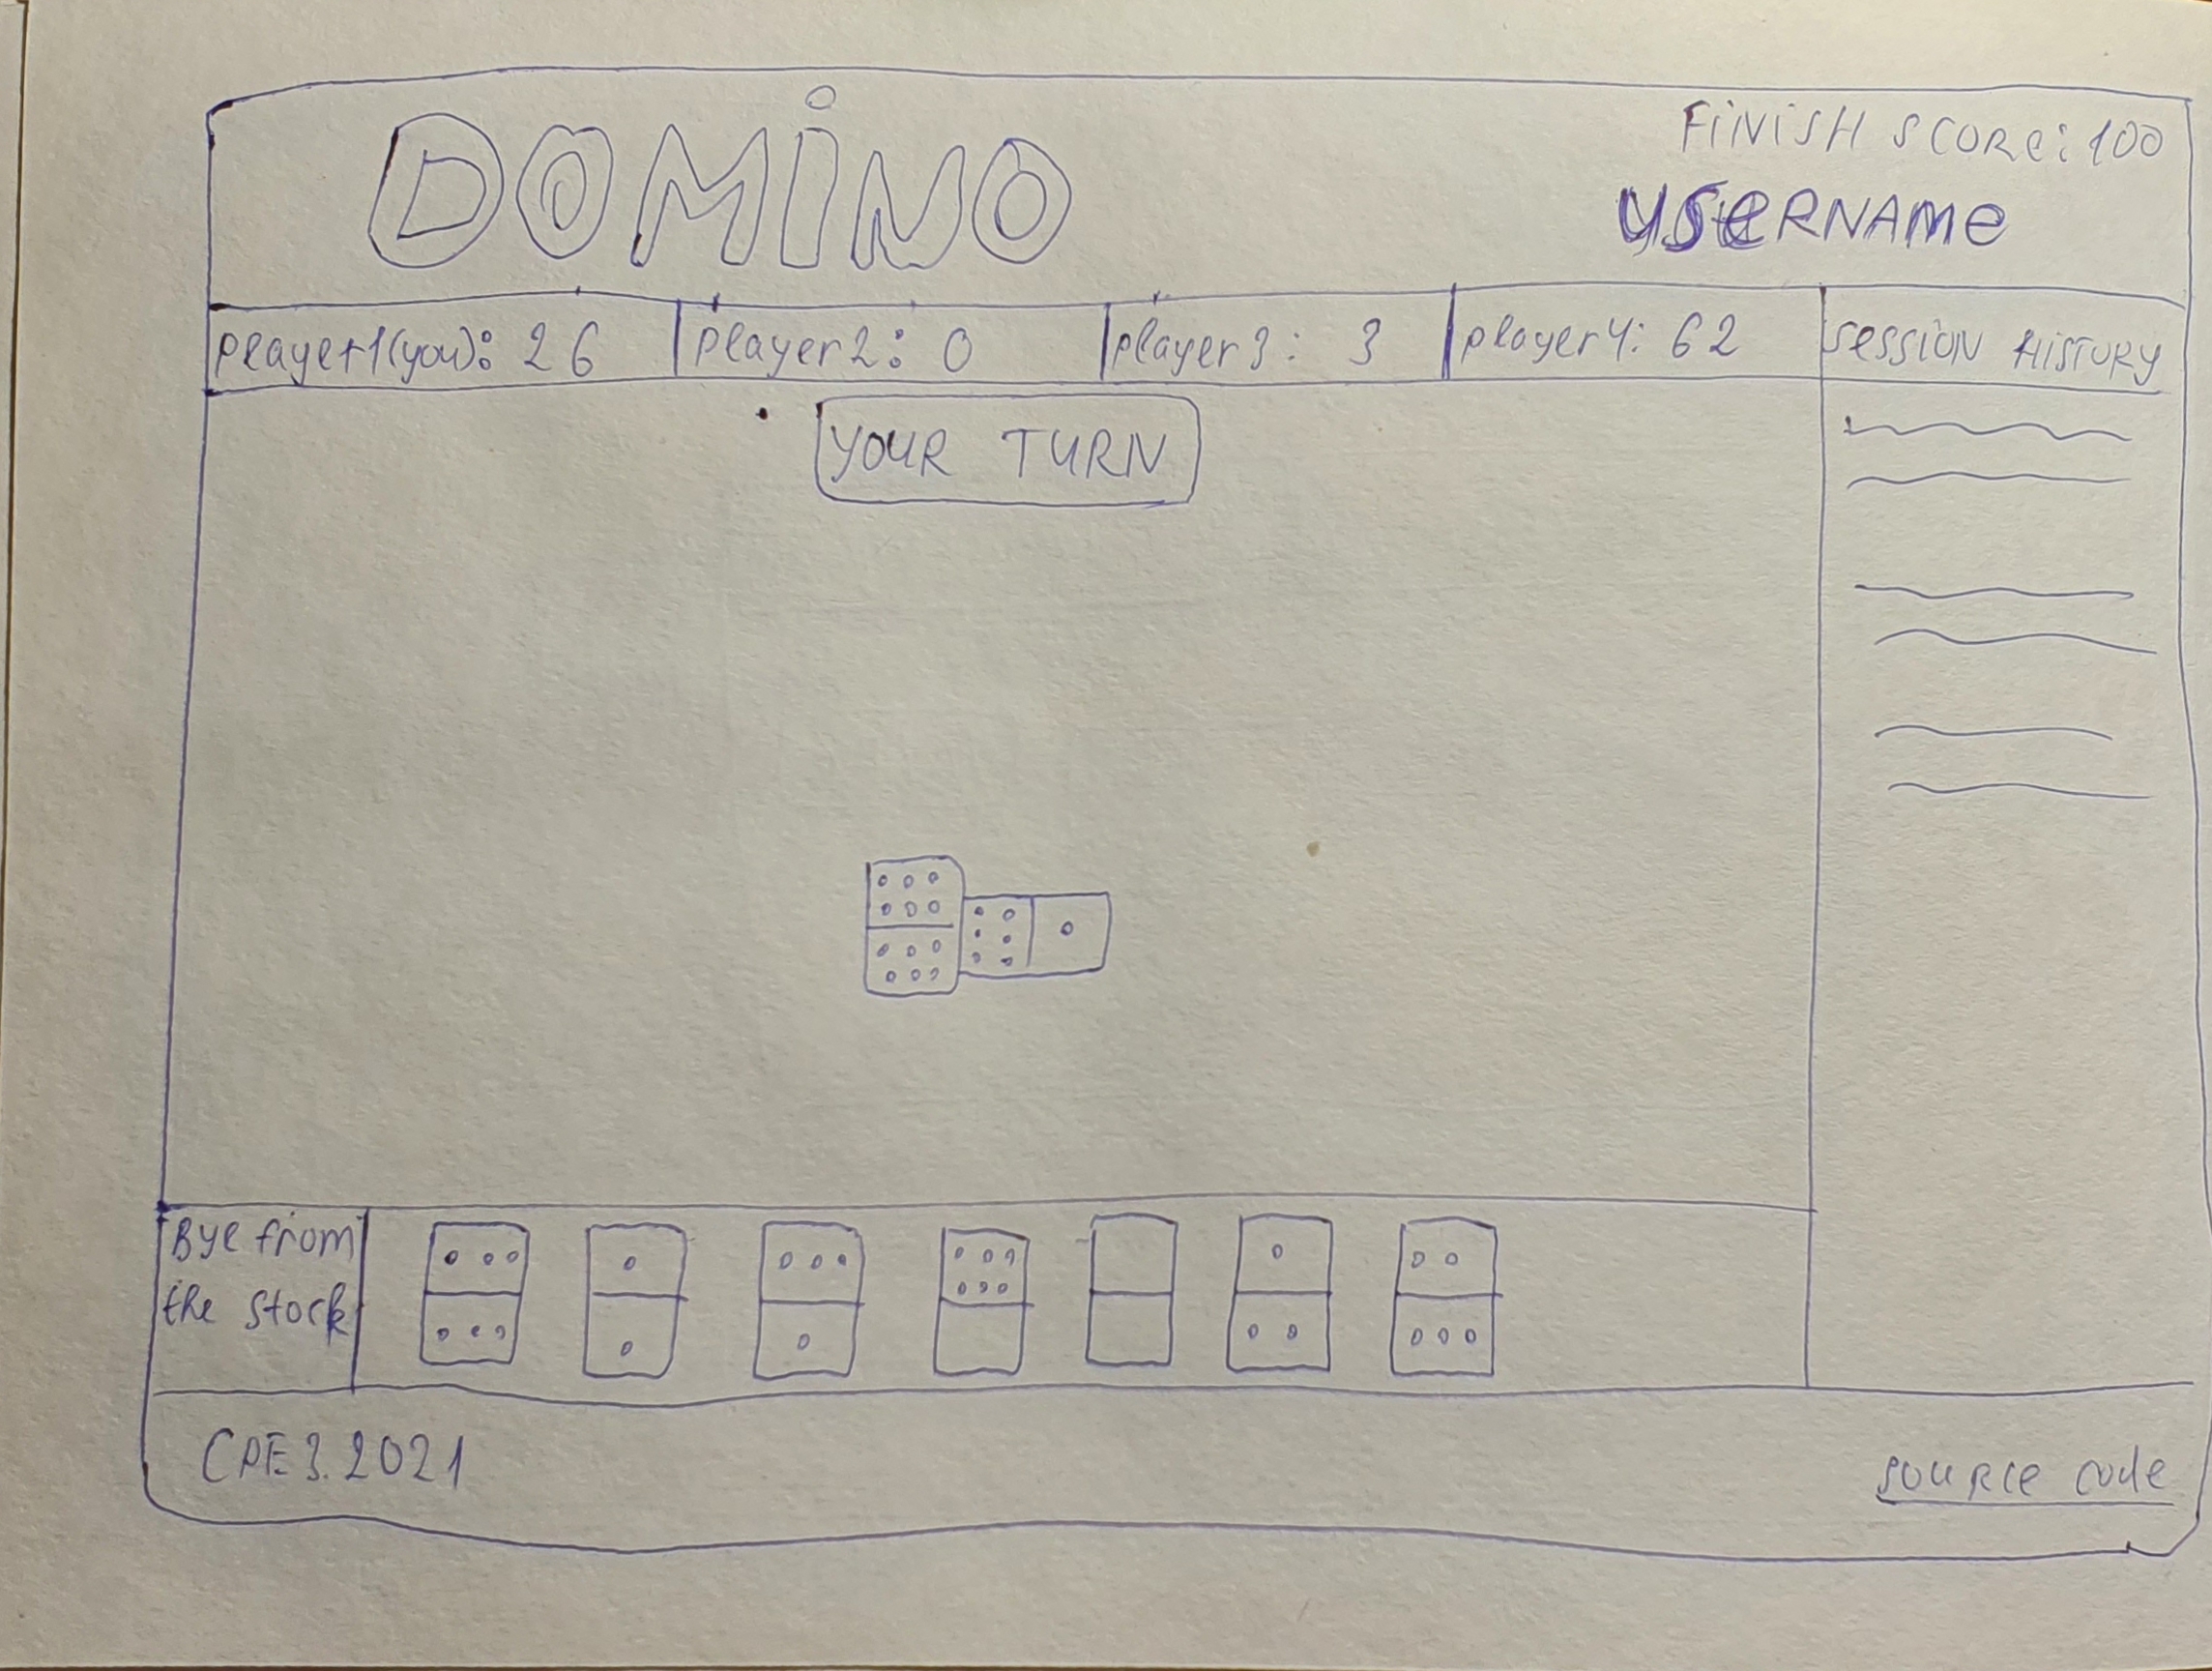 DOMiNO
FiNiSH SCORe: 100
USeRNAMe
player1(you): 26
player2: 0
player3: 3
player4: 62
SeSSiON HiSTORY
YOUR TURN
Bye from
the stock
CPE 3. 2021
source code